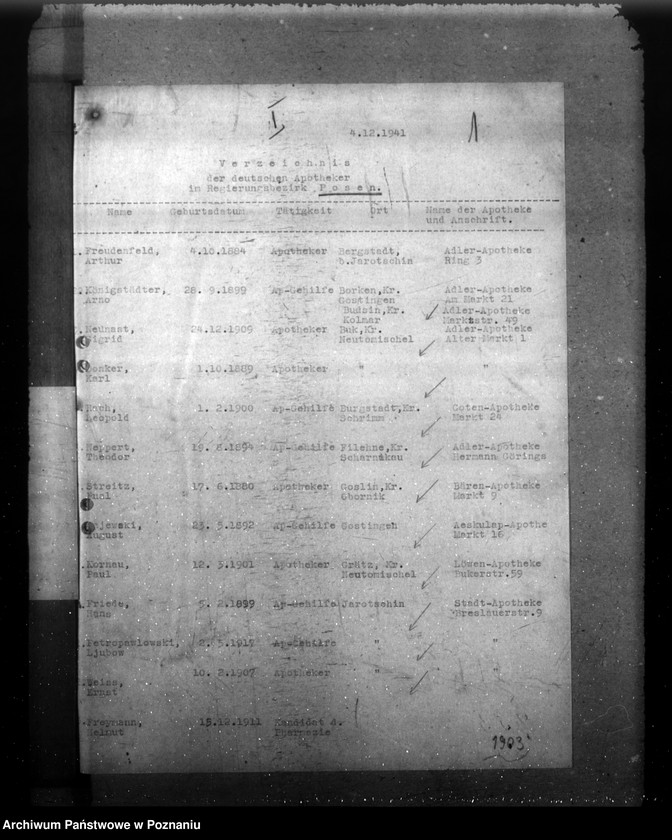 I 4.12.1941 1
V e r z e i c h n i s
der deutschen Apotheker
im Regierungsbezirk P o s e n.
Name Geburtsdatum Tätigkeit Ort Name der Apotheke
und Anschrift.
Freudenfeld, 4.10.1884 Apotheker Bergstadt, Adler-Apotheke
Arthur b.Jarotschin Ring 3
Königstädter, 28. 9.1899 Ap-Gehilfe Borken,Kr. Adler-Apotheke
Arno Gostingen Am Markt 21
Budsin,Kr. Adler-Apotheke
Kolmar Marktstr. 49
Neunast, 24.12.1909 Apotheker Buk,Kr. Adler-Apotheke
Sigrid Neutomischel Alter Markt 1
1.10.1889 Apotheker " "
Karl
1. 2.1900 Ap-Gehilfe Burgstadt,Kr. Goten-Apotheke
Leopold Schrimm Markt 24
Heppert, 8.1894 Ap-Gehilfe Filehne,Kr. Adler-Apotheke
Theodor Scharnikau Hermann Görings
Streitz, 17. 6.1880 Apotheker Goslin,Kr. Bären-Apotheke
Paul Obornik Markt 9
23. 5.1892 Ap-Gehilfe Gostingen Aeskulap-Apothe
August Markt 16
Kornau, 12. 3.1901 Apotheker Grätz, Kr. Löwen-Apotheke
Paul Neutomischel Bukerstr.59
Friede, 5. 2.1899 Ap-Gehilfe Jarotschin Stadt-Apotheke
Hans Breslauerstr.9
Petropawlowski, 2. 5.1917 Ap-Gehilfe " "
Ljubow
10. 2.1907 Apotheker " "
Weiss,
Ernst
Freymann, 15.12.1911 Kandidat d.
Helmut Pharmazie
1903
Archiwum Państwowe w Poznaniu